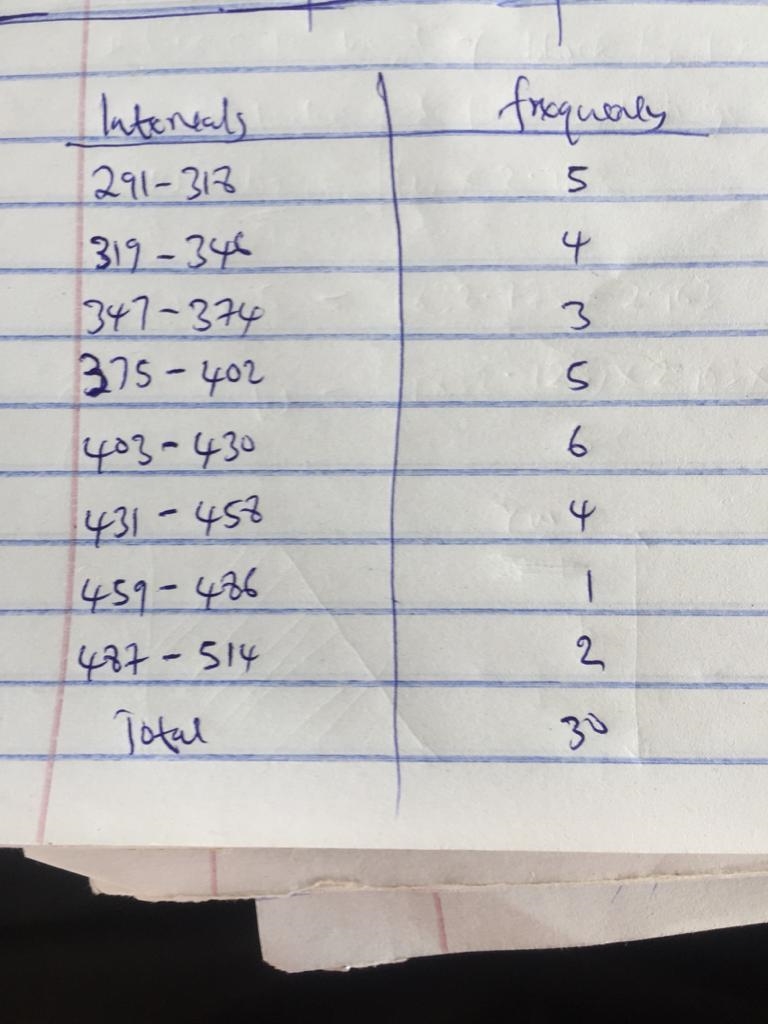 Intervals frequency
291-318 5
319-346 4
347-374 3
375-402 5
403-430 6
431-458 4
459-486 1
487-514 2
Total 30